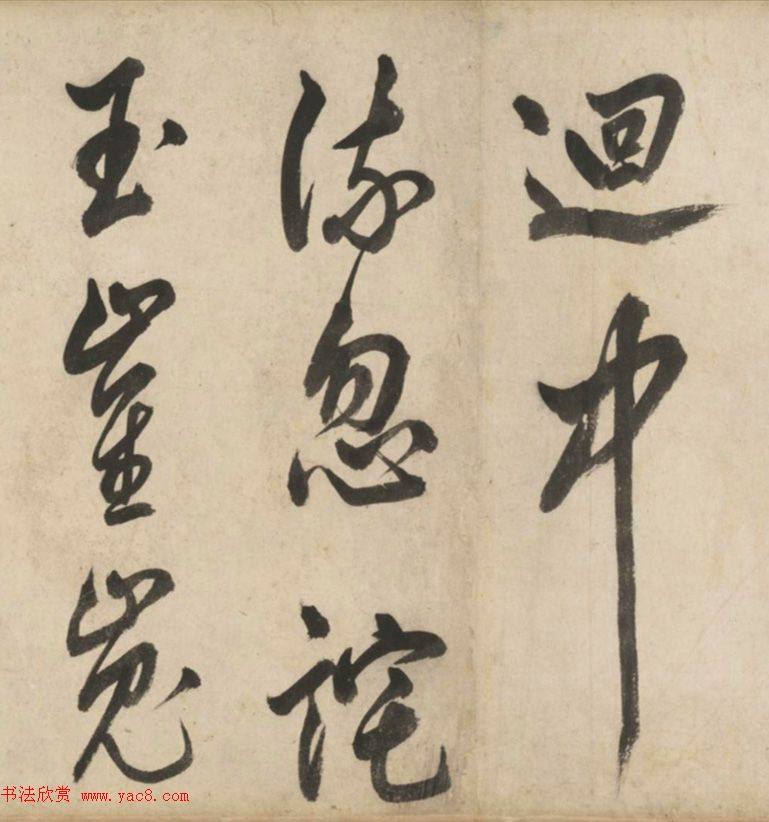 迴中
流忽詫
玉崔嵬
书法欣赏 www.yac8.com